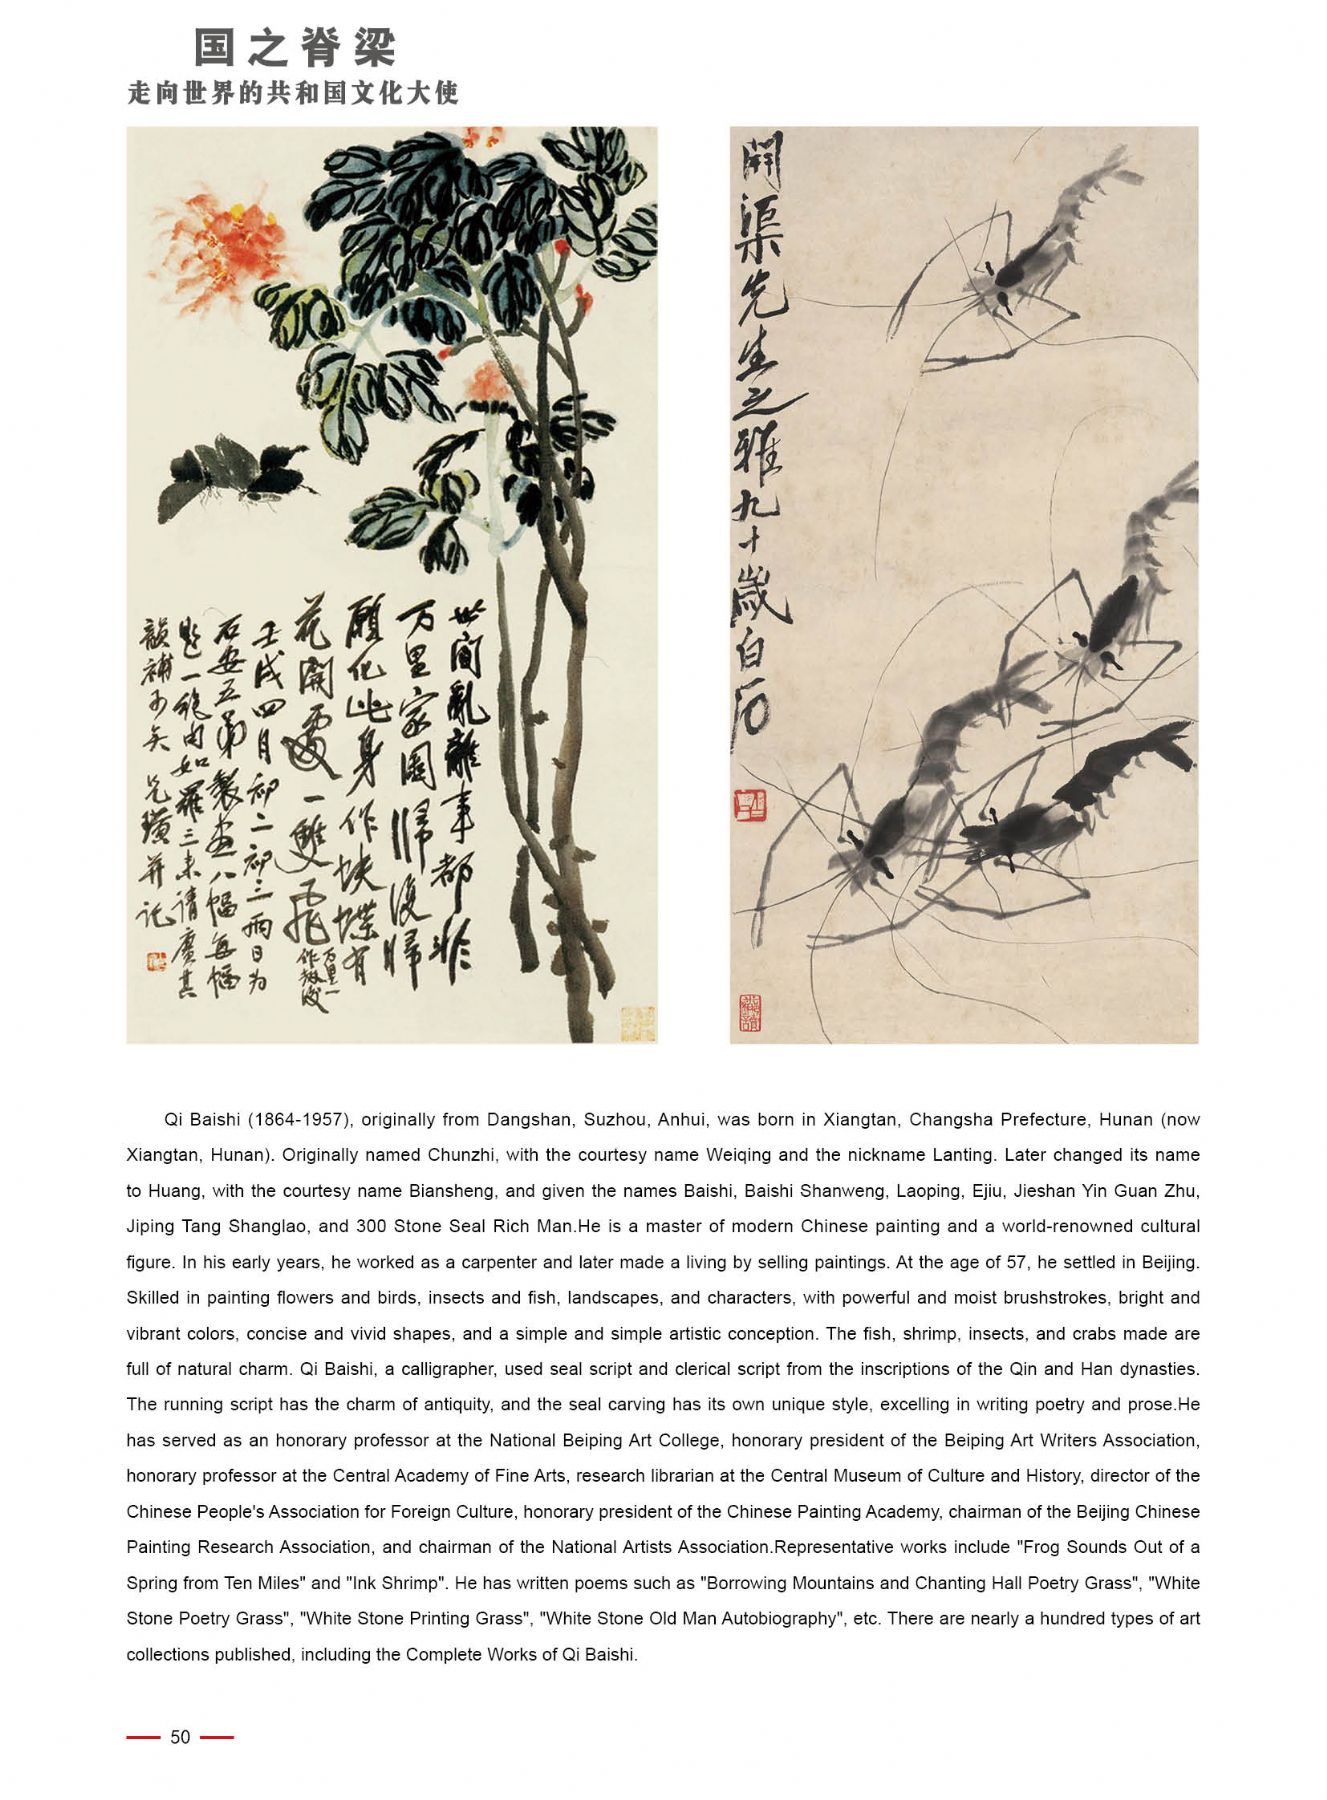 国之脊梁
走向世界的共和国文化大使
世间亂離事都非
万里家園歸復歸
願化此身作蛱蝶有
花開處一雙飛
万里一
作故後
壬戌四月初二初三兩日为
石安五弟製画八幅每幅
題一絕句如羅三来請賡其
韻補可矣兄璜并记
開渠先生之雅九十歲白石
Qi Baishi (1864-1957), originally from Dangshan, Suzhou, Anhui, was born in Xiangtan, Changsha Prefecture, Hunan (now
Xiangtan, Hunan). Originally named Chunzhi, with the courtesy name Weiqing and the nickname Lanting. Later changed its name
to Huang, with the courtesy name Biansheng, and given the names Baishi, Baishi Shanweng, Laoping, Ejiu, Jieshan Yin Guan Zhu,
Jiping Tang Shanglao, and 300 Stone Seal Rich Man.He is a master of modern Chinese painting and a world-renowned cultural
figure. In his early years, he worked as a carpenter and later made a living by selling paintings. At the age of 57, he settled in Beijing.
Skilled in painting flowers and birds, insects and fish, landscapes, and characters, with powerful and moist brushstrokes, bright and
vibrant colors, concise and vivid shapes, and a simple and simple artistic conception. The fish, shrimp, insects, and crabs made are
full of natural charm. Qi Baishi, a calligrapher, used seal script and clerical script from the inscriptions of the Qin and Han dynasties.
The running script has the charm of antiquity, and the seal carving has its own unique style, excelling in writing poetry and prose.He
has served as an honorary professor at the National Beiping Art College, honorary president of the Beiping Art Writers Association,
honorary professor at the Central Academy of Fine Arts, research librarian at the Central Museum of Culture and History, director of the
Chinese People's Association for Foreign Culture, honorary president of the Chinese Painting Academy, chairman of the Beijing Chinese
Painting Research Association, and chairman of the National Artists Association.Representative works include "Frog Sounds Out of a
Spring from Ten Miles" and "Ink Shrimp". He has written poems such as "Borrowing Mountains and Chanting Hall Poetry Grass", "White
Stone Poetry Grass", "White Stone Printing Grass", "White Stone Old Man Autobiography", etc. There are nearly a hundred types of art
collections published, including the Complete Works of Qi Baishi.
50